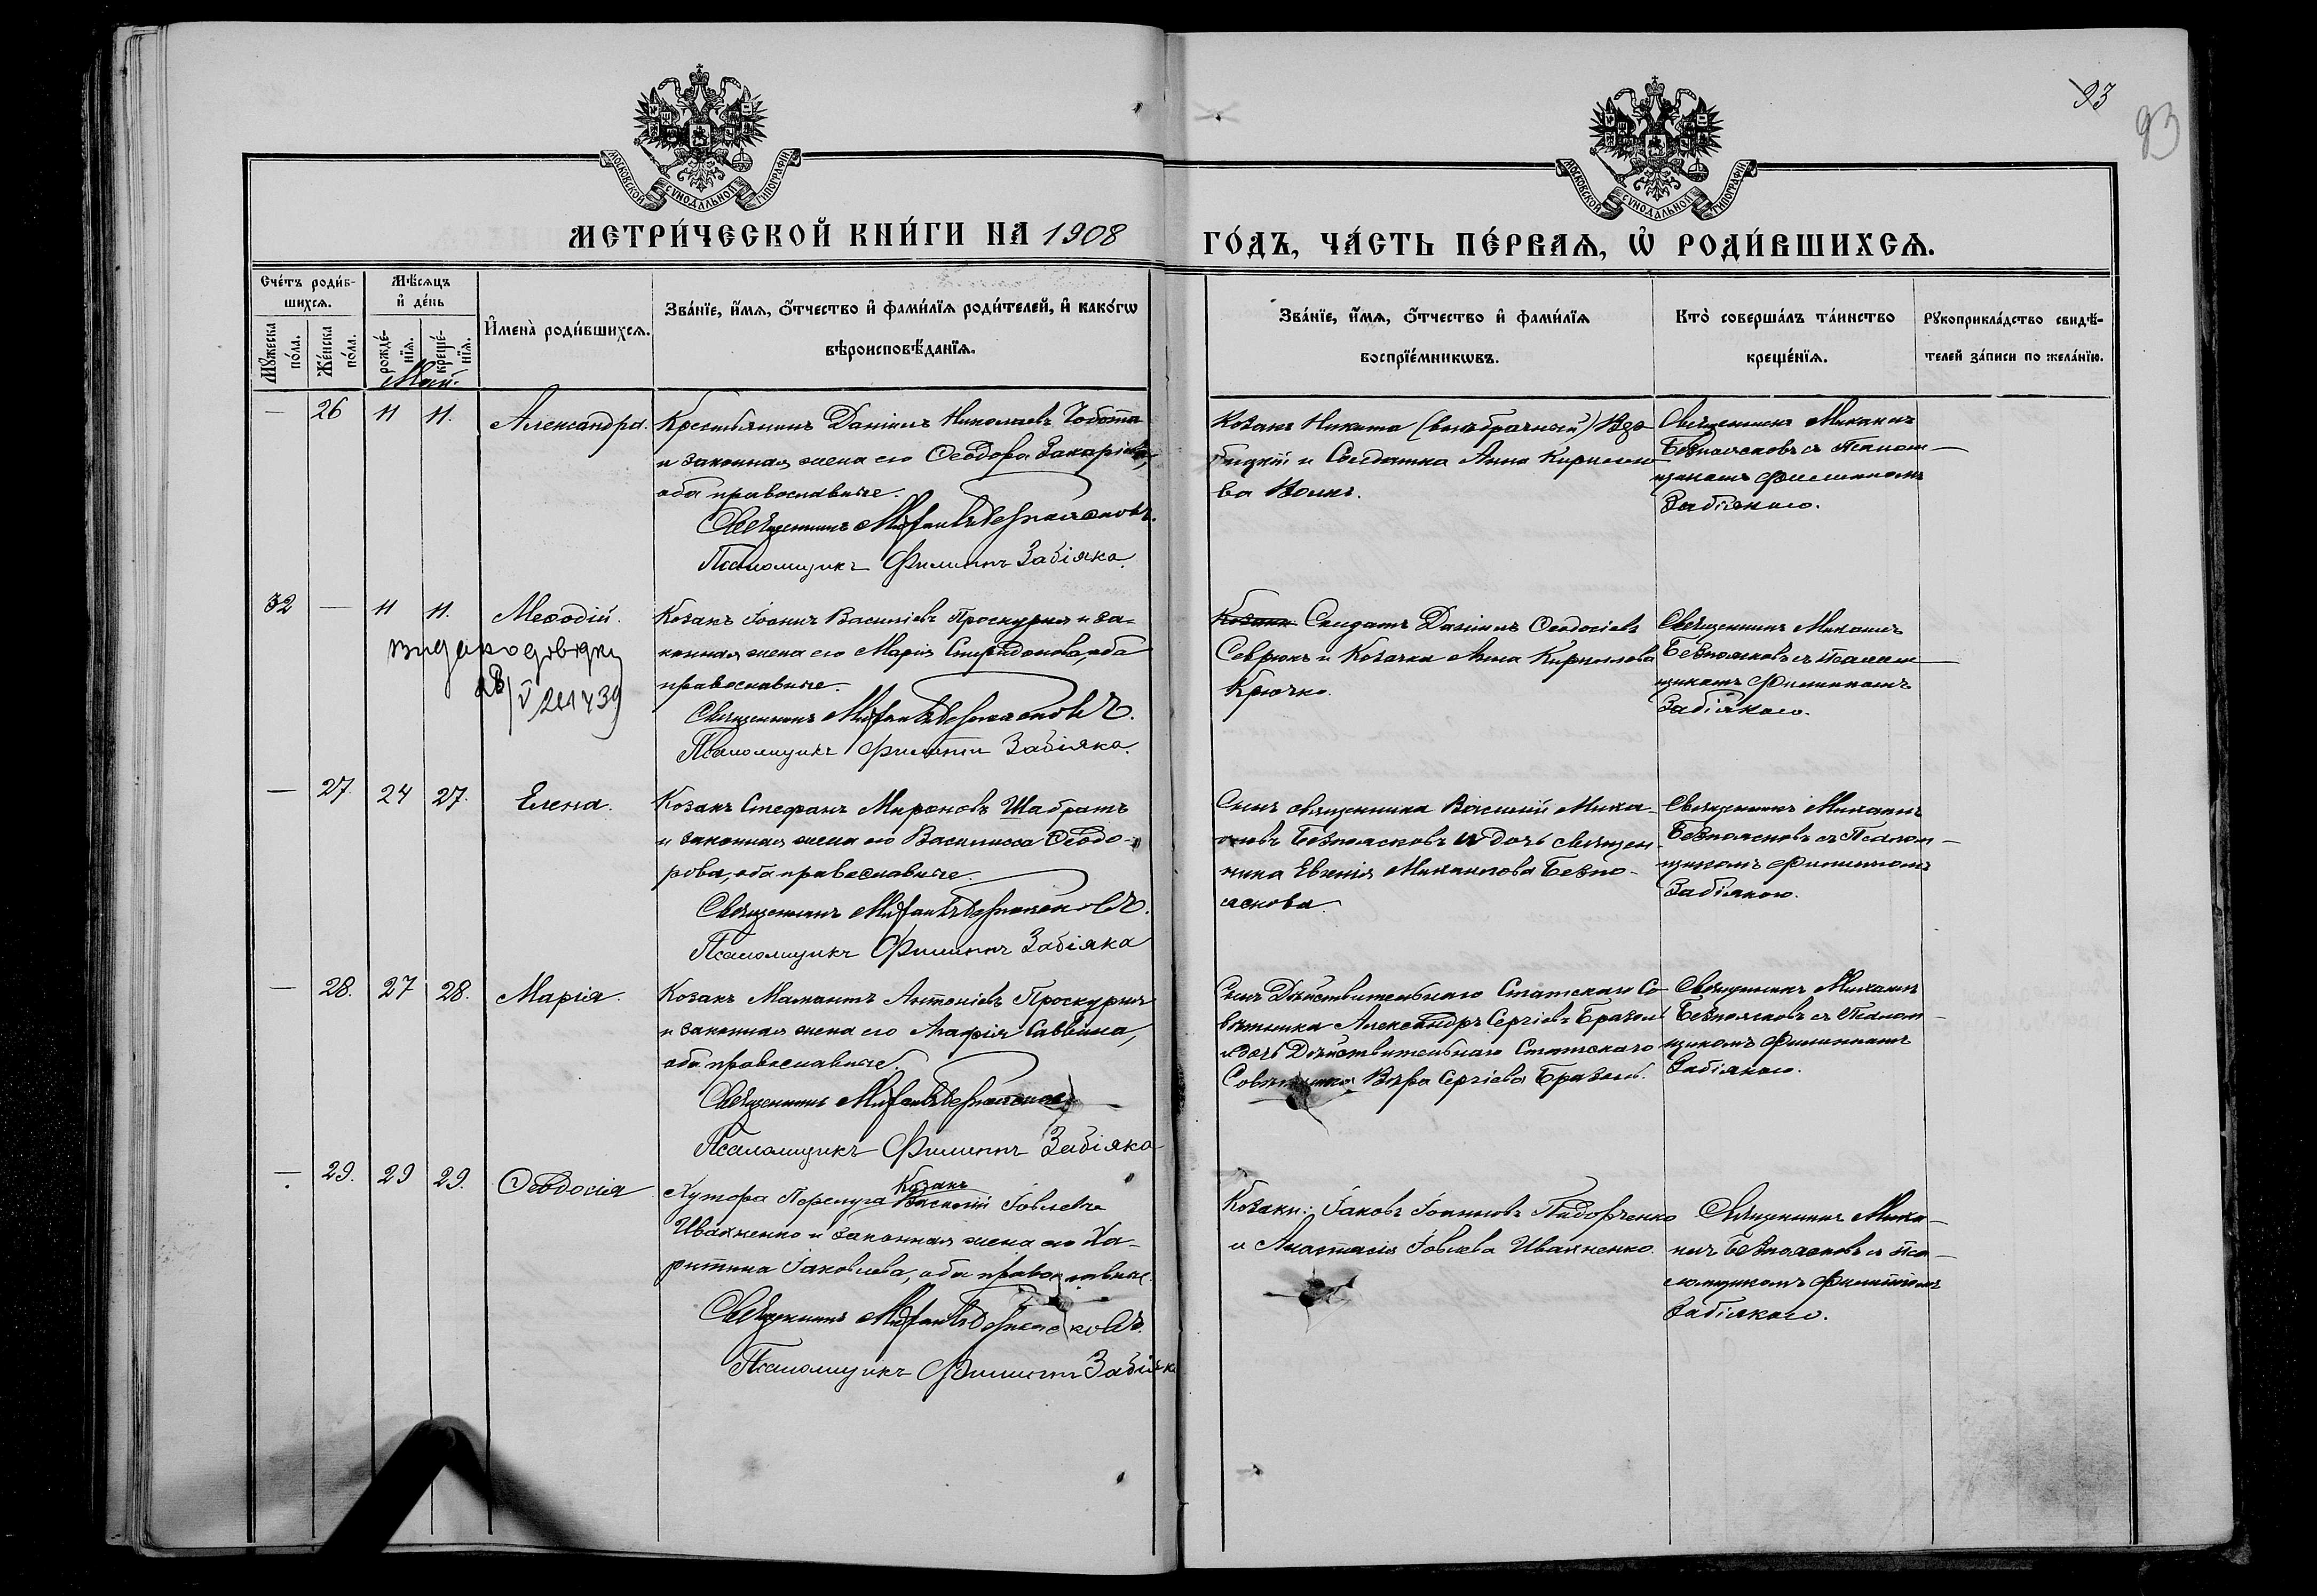 93
93
МОСКОВСКОЙ СѴНОДАЛЬНОЙ ТИПОГРАФІИ
МОСКОВСКОЙ СѴНОДАЛЬНОЙ ТИПОГРАФІИ
МЕТРИ́ЧЕСКОЙ КНИ́ГИ НА 1908
ГО́ДЪ, ЧА́СТЬ ПЕ́РВАѦ, Ѡ҆ РОДИ́ВШИХСѦ.
Сче́тъ роди́в-
шихсѧ.
Мꙋ́жеска
по́ла.
Же́нска
по́ла.
Мѣ́сѧцъ
и҆ де́нь
рожде́-
нїѧ.
креще́-
нїѧ.
И҆мена̀ роди́вшихсѧ.
Зва́нїе, и҆́мѧ, ѻ҆́тчество и҆ фами́лїѧ роди́телей, и҆ како́гѡ
вѣроисповѣ́данїѧ.
Зва́нїе, и҆́мѧ, ѻ҆́тчество и҆ фами́лїѧ
воспрїе́мникѡвъ.
Кто̀ соверша́лъ та́инство
креще́нїѧ.
Рꙋкоприкла́дство свидѣ́-
телей за́писи по жела́нїю.
Май.
— 26 11 11. Александра.
Крестьянинъ Даніилъ Николаевъ Чобота
и законная жена его Ѳеодора Захаріева,
оба православные.
Священникъ Михаилъ Безпоясковъ.
Псаломщикъ Филиппъ Забіяка.
Козакъ Никита (внѣбрачный)
и Солдатка Анна Кирилло-
ва
Священникъ Михаилъ
Безпоясковъ съ Псалом-
щикомъ Филиппомъ
Забіякою.
32 — 11 11. Меѳодій.
Козакъ Іоаннъ Василіевъ Проскурня и за-
конная жена его Марія Спиридонова, оба
православные.
Священникъ Михаилъ Безпоясковъ.
Псаломщикъ Филиппъ Забіяка.
V 39
Козаки Солдатъ Даніилъ Ѳеодосіевъ
Севрюкъ и Козачка Анна Кириллова
Крючко.
Священникъ Михаилъ
Безпоясковъ съ Псалом-
щикомъ Филиппомъ
Забіякою.
— 27. 24 27. Елена.
Козакъ Стефанъ Мироновъ Шабратъ
и законная жена его Василисса Ѳеодо-
рова, оба православные.
Священникъ Михаилъ Безпоясковъ.
Псаломщикъ Филиппъ Забіяка
Сынъ священника Василій Михаи-
ловъ Безпоясковъ и дочь священ-
ника Евгенія Михаилова Безпо-
яскова.
Священникъ Михаилъ
Безпоясковъ съ Псалом-
щикомъ Филиппомъ
Забіякою.
— 28. 27 28. Марія.
Козакъ Мамантъ Антоніевъ Проскурня
и законная жена его Агафія Саввина,
оба православные.
Священникъ Михаилъ Безпоясковъ
Псаломщикъ Филиппъ Забіяка
Сынъ Дѣйствительнаго Статскаго Со-
вѣтника Александръ Сергіевъ Бразоль
и дочь Дѣйствительнаго Статскаго
Совѣтника Вѣра Сергіева Бразоль.
Священникъ Михаилъ
Безпоясковъ съ Псалом-
щикомъ Филиппомъ
Забіякою.
— 29. 29 29. Ѳеодосія
Козакъ
Хутора Перелуга Василій Іовлевъ
Ивахненко и законная жена его Ха-
ритина Іаковлева, оба православные.
Священникъ Михаилъ Безпоясковъ.
Псаломщикъ Филиппъ Забіяка
Козаки: Іаковъ Іоанновъ Пидорченко
и Анастасія Іовлева Ивахненко.
Священникъ Миха-
илъ Безпоясковъ съ Пса-
ломщикомъ Филиппомъ
Забіякою.